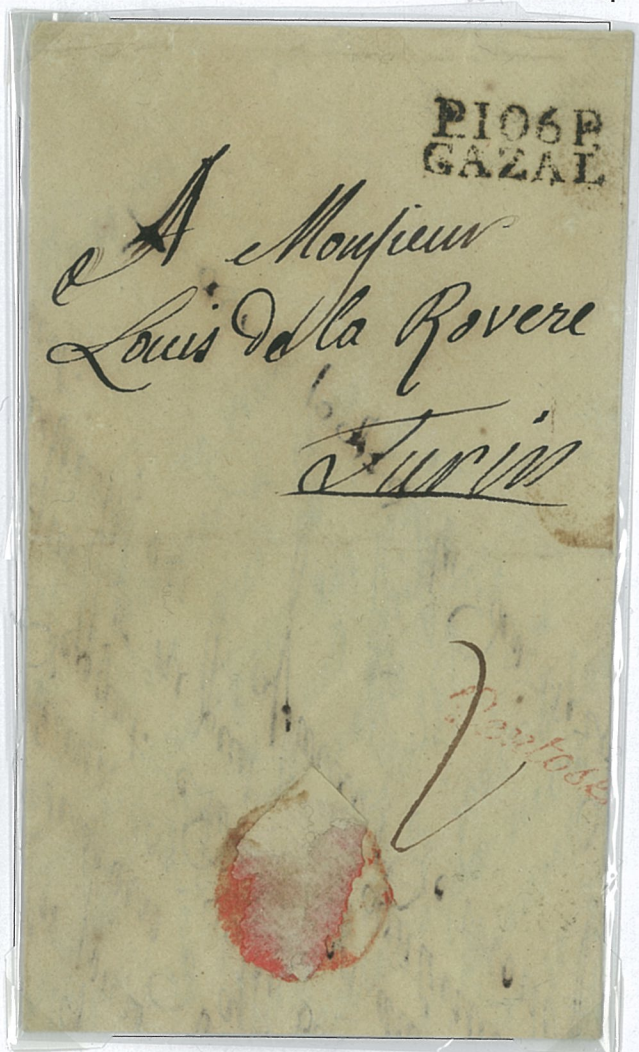 P.106.P.
GAZAL
A Monsieur
Louis de la Rovere
Turin
Ventose